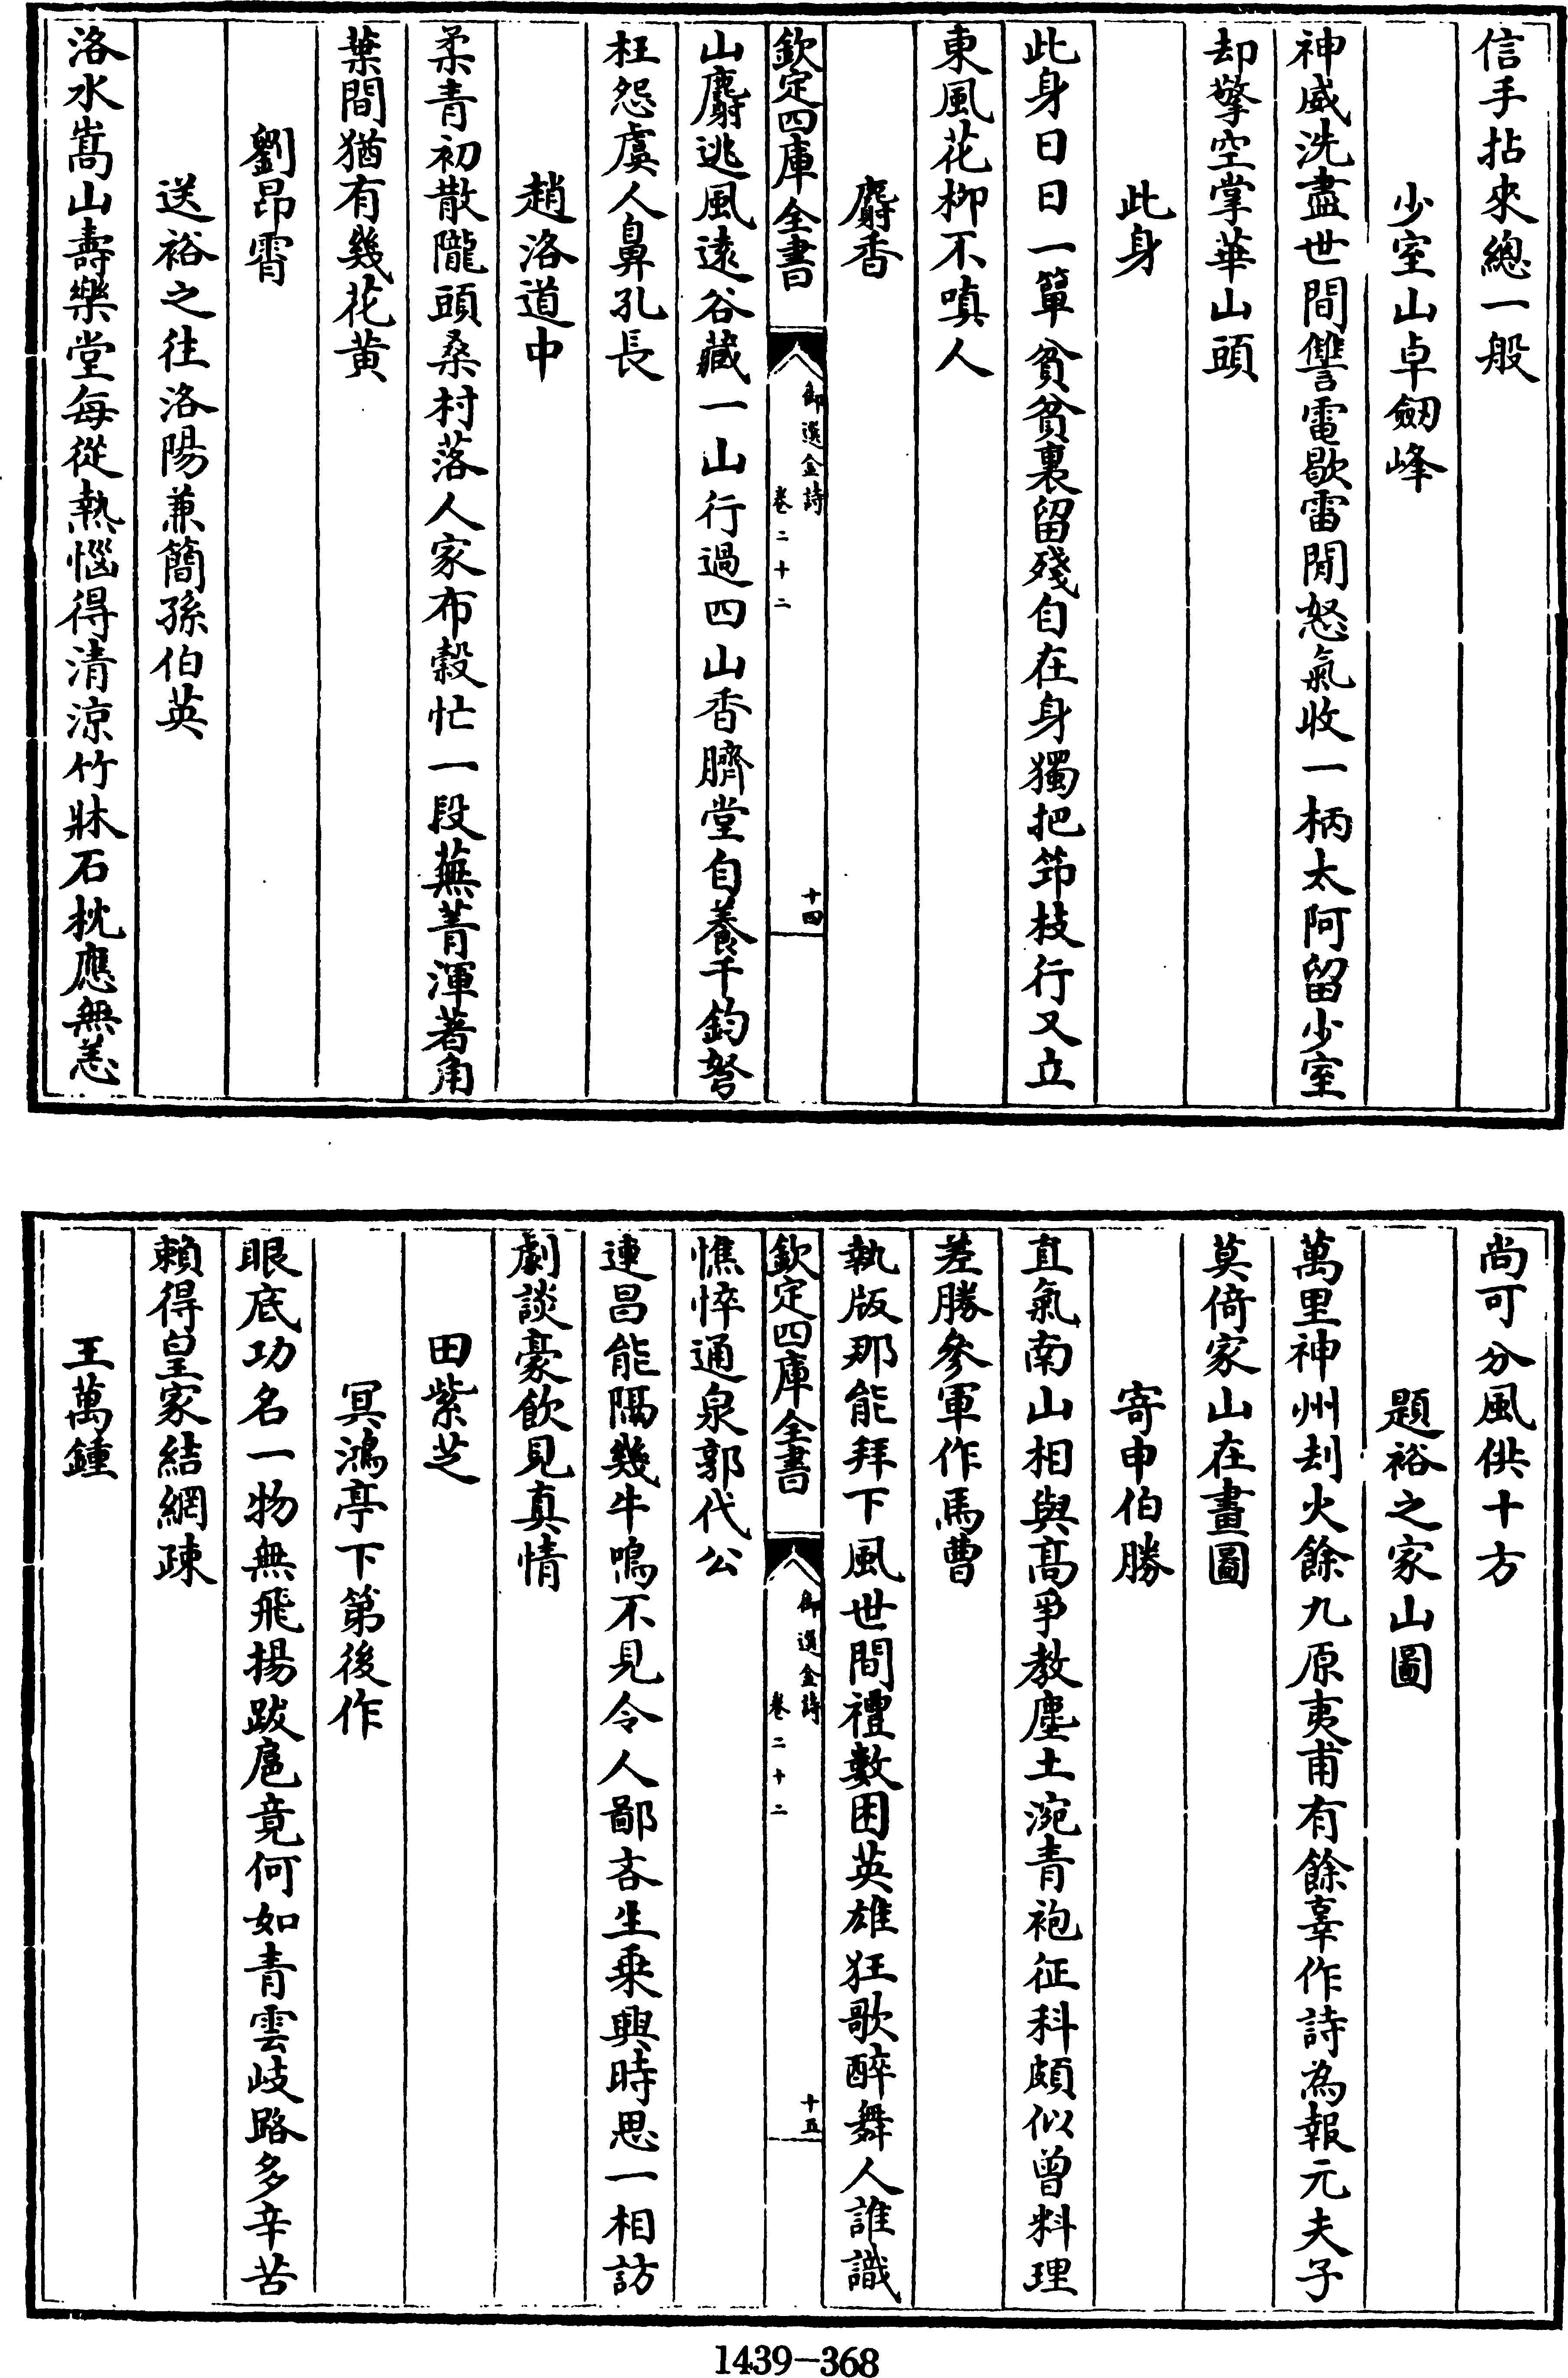 信手拈來總一般
少室山卓劔峰
神威洗盡世間讐電歇雷閒怒氣收一柄太阿留少室
却擎空掌華山頭
此身
此身日日一簞貧貧裏留殘自在身獨把笻枝行又立
東風花柳不嗔人
麝香
欽定四庫全書
御選金詩
卷二十二
十四
山麝逃風遠谷藏一山行過四山香臍堂自養千鈞弩
枉怨虞人鼻孔長
趙洛道中
柔青初散隴頭桑村落人家布榖忙一段蕪菁渾著角
葉間猶有幾花黄
劉昂霄
送裕之往洛陽兼簡孫伯英
洛水嵩山壽樂堂每從熱惱得清涼竹牀石枕應無恙
尚可分風供十方
題裕之家山圖
萬里神州刦火餘九原夷甫有餘辜作詩為報元夫子
莫倚家山在畫圖
寄申伯勝
直氣南山相與髙爭教塵土涴青袍征科頗似曾料理
差勝參軍作馬曹
執版那能拜下風世間禮數困英雄狂歌醉舞人誰識
欽定四庫全書
御選金詩
卷二十二
十五
憔悴通泉郭代公
連昌能隔幾牛鳴不見令人鄙吝生乗興時思一相訪
劇談豪飲見真情
田紫芝
冥鴻亭下第後作
眼底功名一物無飛揚跋扈竟何如青雲岐路多辛苦
賴得皇家結網疎
王萬鍾
1439-368